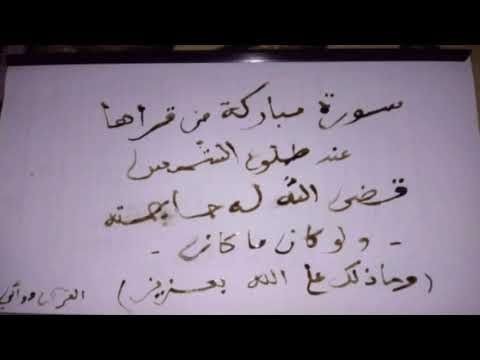 سورة مباركة من قرأها
عند طلوع الشمس
قضى الله له حاجته
- ولو كان ما كان -
(وما ذلك على الله بعزيز)